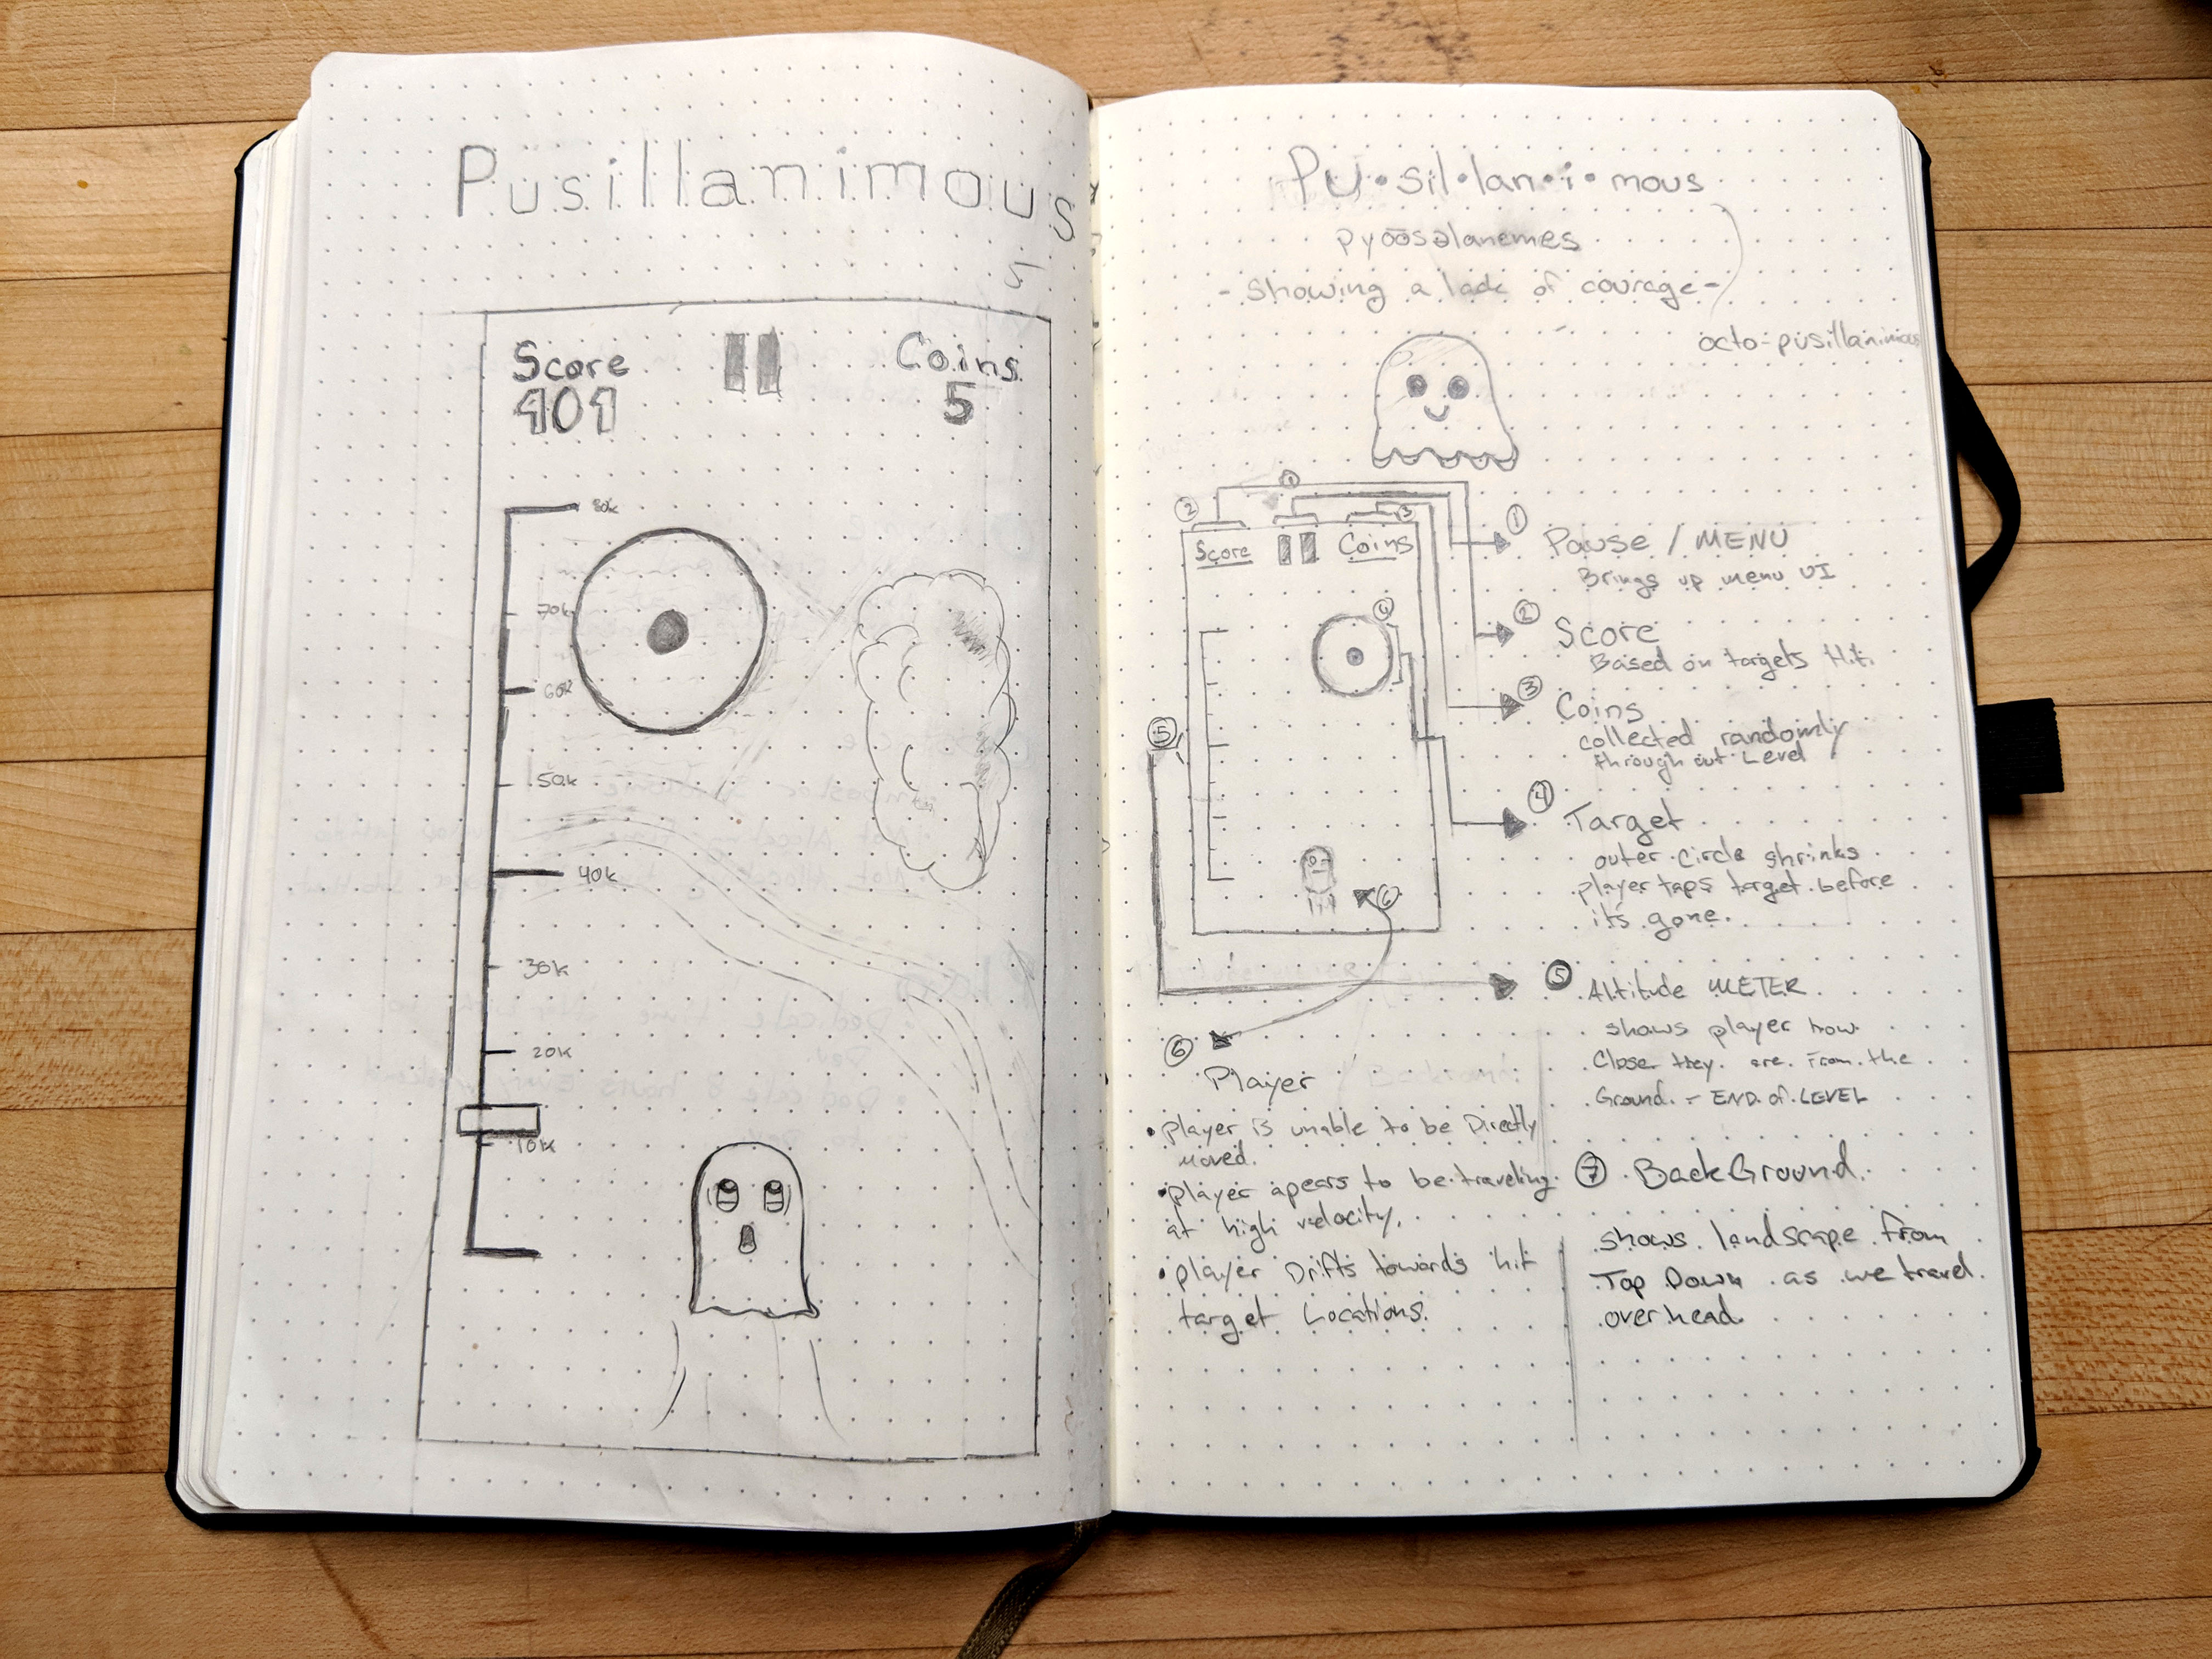 Pusillanimous
5
Score
Coins
401
5
80k
70k
60k
50k
40k
30k
20k
10k
Pu•sil•lan•i•mous
pyōōsəlanəmes
- Showing a lack of courage -
octo-pusillanimous
1
2
3
Score
Coins
4
5
6
1
Pause / MENU
Brings up menu UI
2
Score
Based on targets Hit.
3
Coins
collected randomly
through out Level
4
Target
outer circle shrinks
player taps target before
it's gone.
5 Altitude METER
shows player how
Close they are From the
Ground - END of LEVEL
6
Player
• player is unable to be Directly
moved.
• player apears to be traveling
at high velocity.
• player Drifts towards hit
target Locations.
7 BackGround
shows landscape from
Top Down as we travel
overhead.